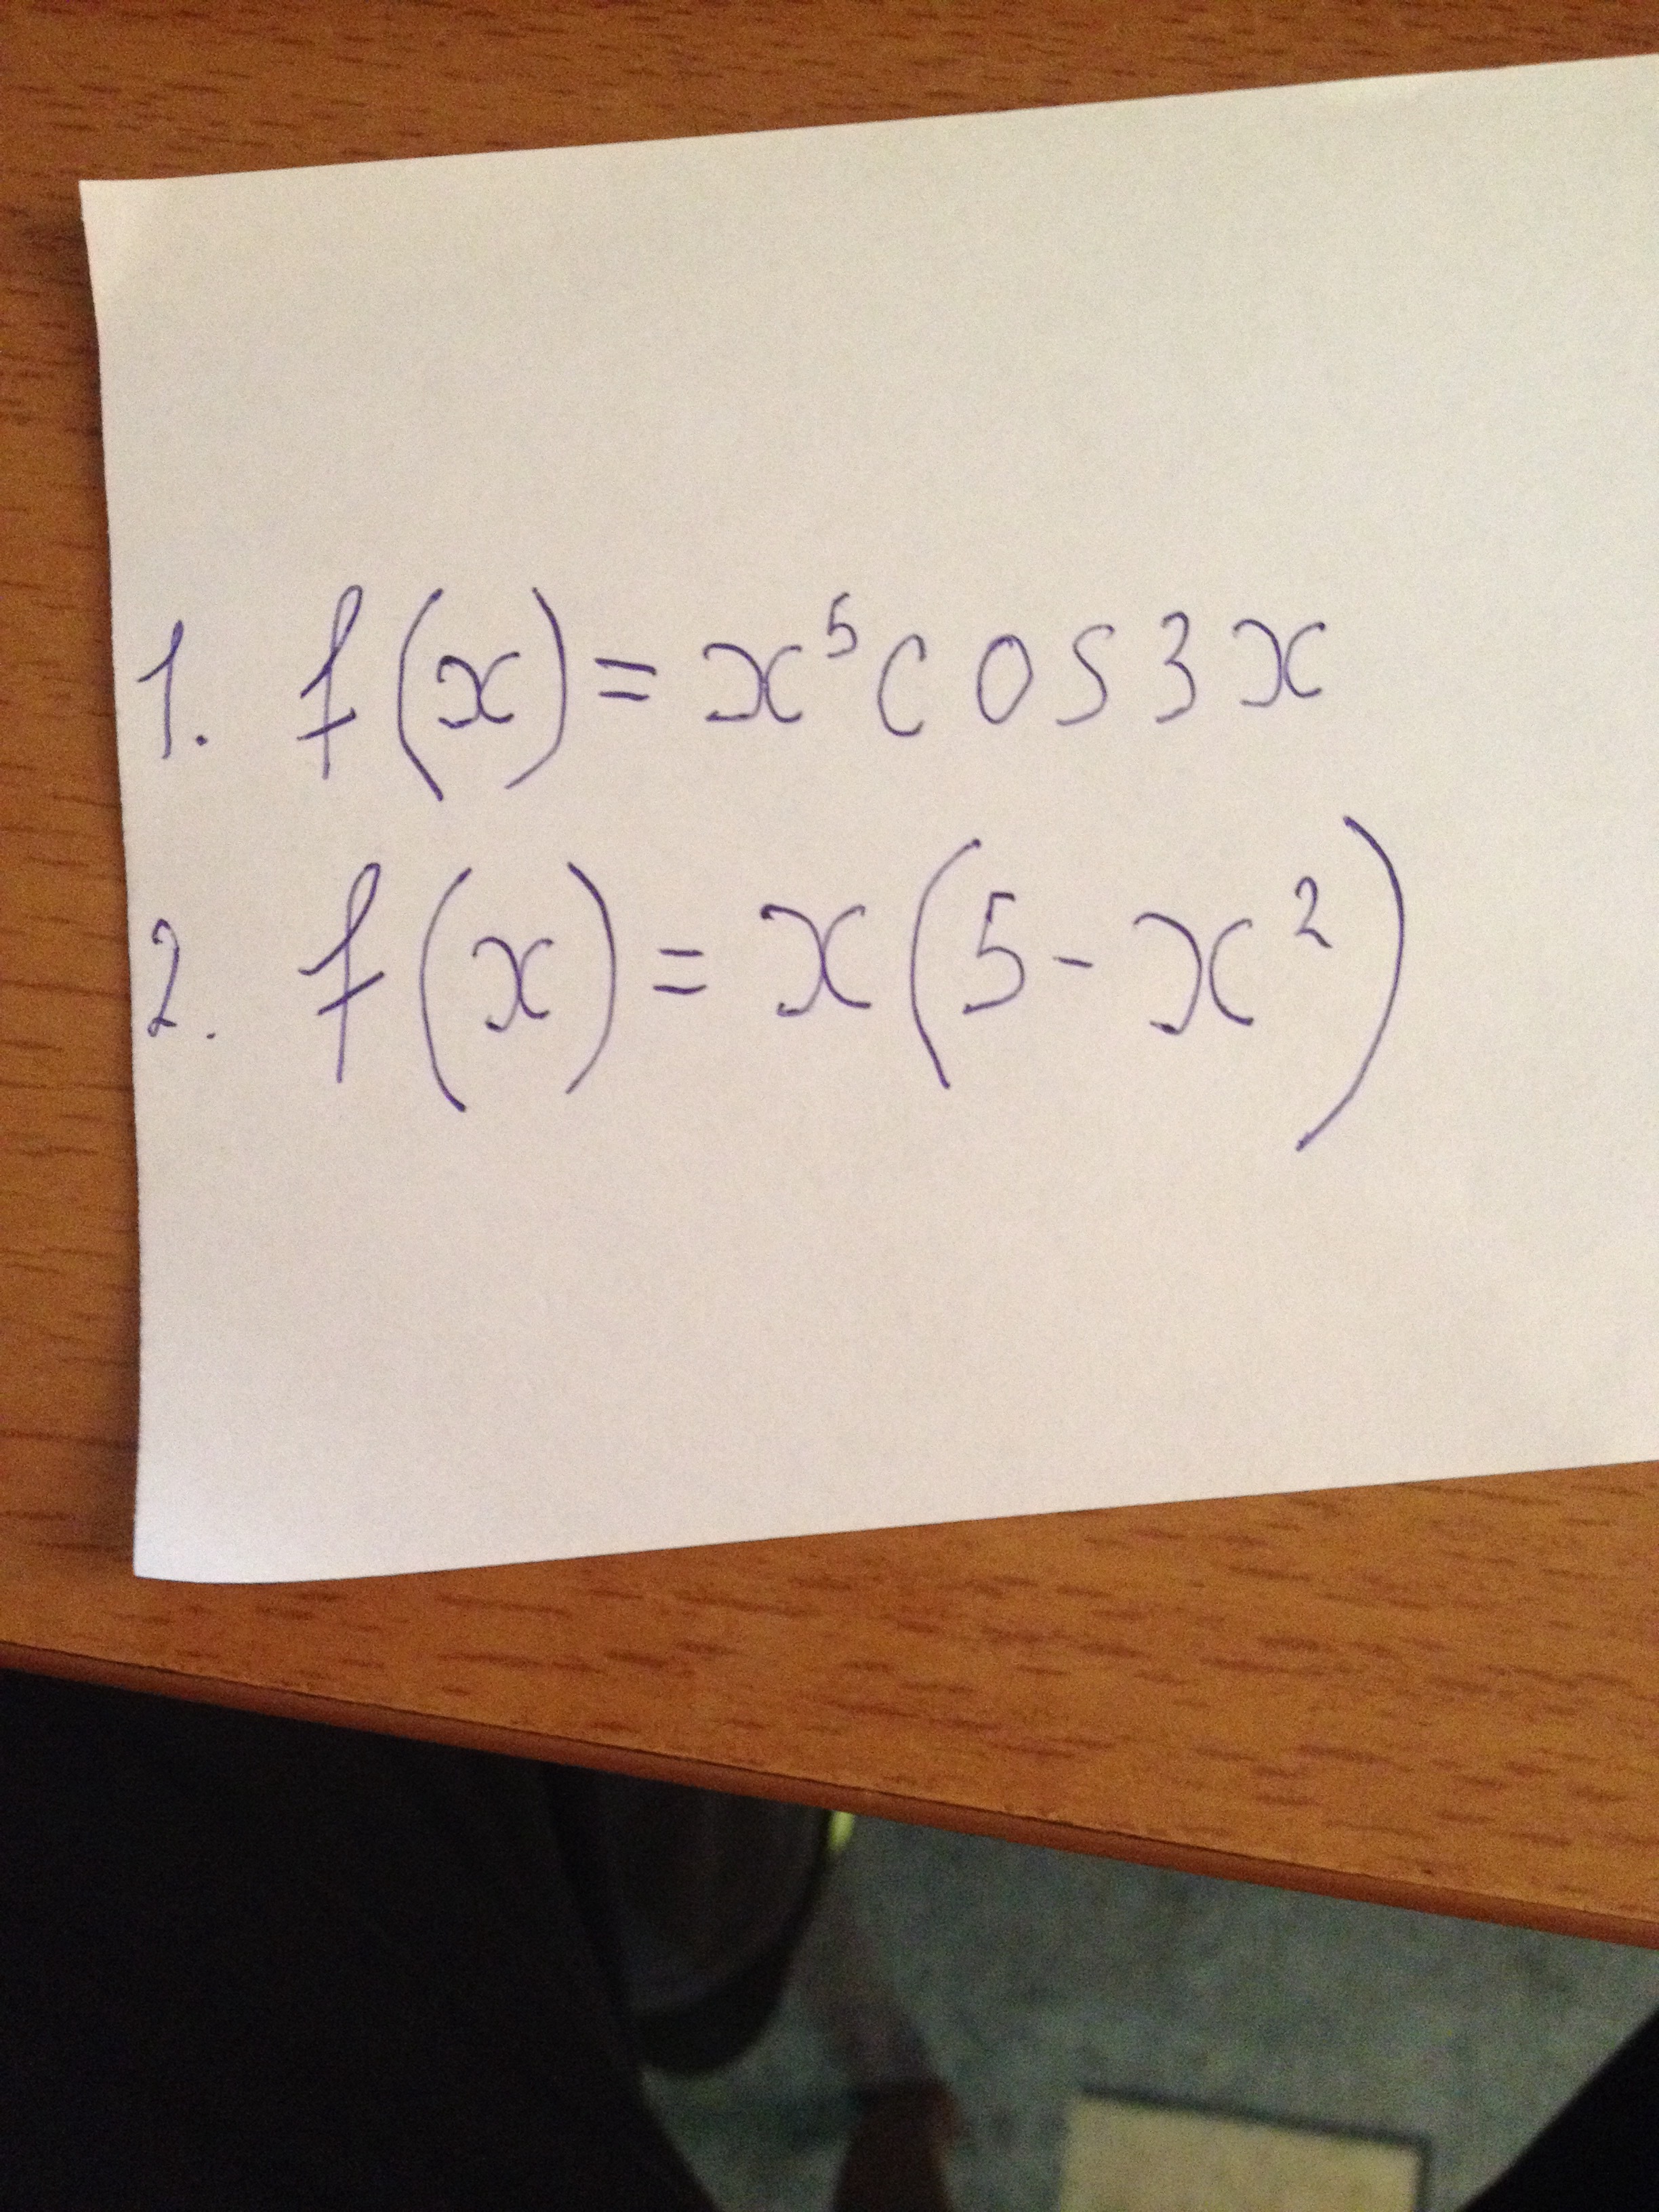 1. f(x) = x⁵cos3x
2. f(x) = x(5 - x²)